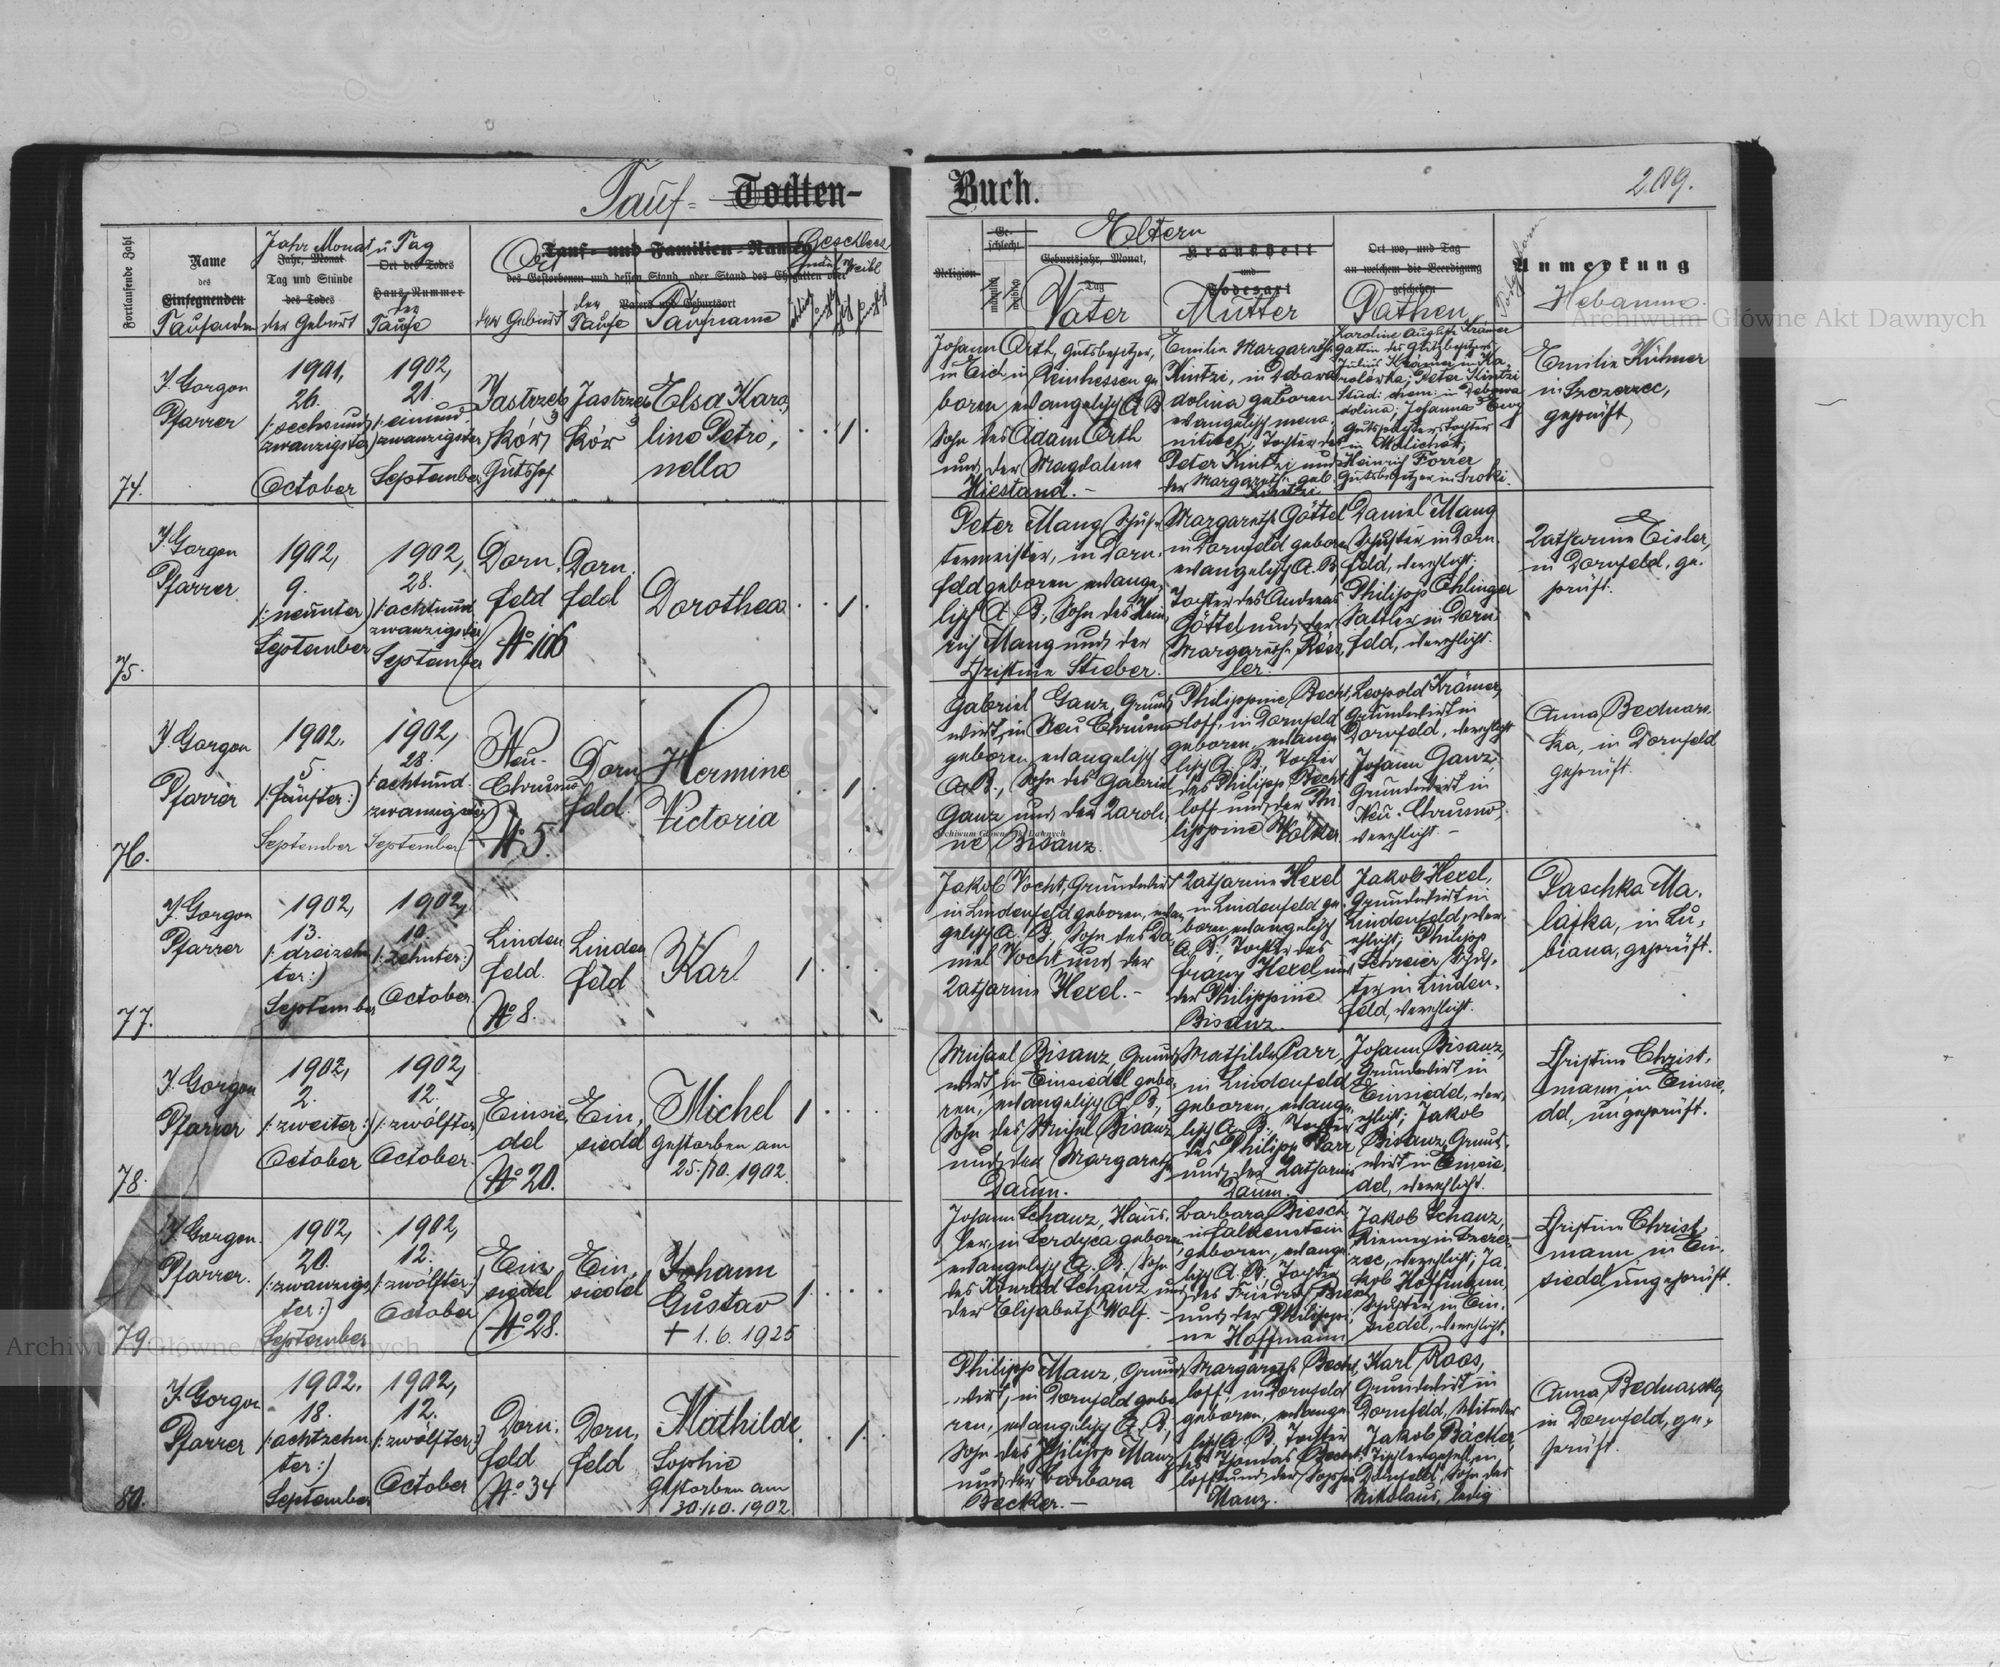 Tauf- Todten-
Buch.
209.
Fortlaufende Zahl
Name
des
Einsegnenden
Taufenden
Jahr Monat u Tag
Jahr, Monat
Tag und Stunde
des Todes
der Geburt
Ort des Todes
Haus-Nummer
der
Taufe
Tauf- und Familien-Name
Ort
des Gestorbenen und dessen Stand, oder Stand des Ehegatten oder
Vaters und Geburtsort
der Geburt
der
Taufe
Taufname
Geschlecht
Weibl
Religion
Geschlecht
männlich
Eltern
Geburtsjahr, Monat,
Tag
Vater
Krankheit
und
Todesart
Mutter
Ort wo, und Tag
an welchem die Beerdigung
geschehen
Pathen
Anmerkung
Hebamme
Archiwum Główne Akt Dawnych
74.
J. Gorgon
Pfarrer
1901,
26.
(: sechsund
zwanzigster
October
1902,
21.
(: einund
zwanzigster
September
Jastrzeb
ków
Gutshof
Jastrzeb
ków
Elsa Karo,
line Petro,
nella
1
Johann Orth, Gutsbesitzer,
in Eich in Rheinhessen ge
boren, evangelisch A. B.
Sohn des Adam Orth
und der Magdalena
Hiestand. -
Emilie Margareth
Kintzi, in Debowa
dolina geboren
evangelisch meno,
nitisch, Tochter des
Peter Kintzi und
der Margareth geb.
Kintzi
Karoline Auguste Krämer
Gattin des Gutsbesitzers
Julius Krämer in Ka,
rolówka; Peter Kintzi
Stud: chem: in Debowa
dolina; Johanna
Gutspächterstochter
in
Heinrich Forrer
Gutsbesitzer in Sroki.
Emilie Kühner
in Szczerzec,
geprüft,
75.
J. Gorgon
Pfarrer
1902,
9.
(: neunter)
September
1902,
28.
(: achtund
zwanzigster
September
Dorn,
feld
No 106
Dorn
feld
Dorothea
1
Peter Mang Schus-
termeister, in Dorn,
feld geboren, evange,
lisch A. B., Sohn des Hein,
rich Mang und der
Christine Stieber.
Margareth Göttel
in Dornfeld geboren
evangelisch A. B.
Tochter des Andreas
Göttel und der
Margareth Röss,
ler.
Daniel Mang
Schuster in Dorn
feld, verehligt;
Philipp Ehlinger
Sattler in Dorn
feld, verehlicht.
Katharine Eisler,
in Dornfeld, ge,
prüft.
76.
J. Gorgon
Pfarrer
1902.
5.
(: fünfter:)
September
1902,
28.
(: achtund
zwanzigster
September
Neu-
Chrusno
No 5.
Dorn
feld
Hermine
Victoria
1
Gabriel Ganz, Grund
wirt, in Neu Chrusno
geboren evangelisch
A. B., Sohn des Gabriel
Ganz und der Karoli,
ne Bisanz.
Philippine Becht,
loff, in Dornfeld
geboren, evange
lisch A. B., Tochter
des Philipp Becht
loff und der Phi,
lippine Wolker.
Leopold Krämer,
Grundwirt in
Dornfeld, verehligt
Johann Ganz,
Grundwirt in
Neu-Chrusno,
verehlicht -
Anna Bednars,
ka, in Dornfeld
geprüft.
Archiwum Główne Akt Dawnych
77.
J. Gorgon
Pfarrer
1902,
13.
(: dreizehn
ter:)
September
1902,
10.
(: zehnter:)
October.
Linden
feld.
No 8.
Linden
feld
Karl
1
Jakob Vocht, Grundwirt
in Lindenfeld geboren, evan,
gelisch A. B., Sohn des Da,
niel Vocht und der
Katharine Hexel. -
Katharine Hexel
in Lindenfeld ge,
boren, evangelisch
A. B., Tochter des
Franz Hexel und
der Philippine
Bisanz.
Jakob Hexel,
Grundwirt in
Lindenfeld, ver,
ehlicht; Philipp
Schreier, Schus,
ter in Linden,
feld, verehlicht.
Paschka Ma,
lajka, in Lu,
biana, geprüft.
78.
J. Gorgon
Pfarrer
1902,
2.
(: zweiter:)
October
1902,
12.
(: zwölfter
October.
Einsie,
del
No 20.
Ein,
siedel
Michel
gestorben am
25./10. 1902.
1
Michael Bisanz, Grund
wirt, in Einsiedel gebo,
ren, evangelisch A. B.,
Sohn des Michel Bisanz
und der Margareth
Daum.
Mathilde Parr,
in Lindenfeld
geboren, evange,
lisch A. B., Tochter
des Philipp Parr
und der Katharine
Daum.
Johann Bisanz,
Grundwirt in
Einsiedel, ver,
ehlicht; Jakob
Bisanz, Grund
wirt in Einsie,
del, verehlicht.
Christine Christ,
mann, in Einsie,
del, ungeprüft.
79.
J. Gorgon
Pfarrer.
1902,
20.
(: zwanzigs,
ter:)
September
1902,
12.
(: zwölfter:)
October
Ein,
siedel
No 28.
Ein,
siedel
Johann
Gustav
+ 1. 6. 1925
1
Johann Schanz, Häus,
ler, in Serdyca geboren
evangelisch A. B., Sohn
des Konrad Schanz und
der Elisabeth Wolf. -
Barbara Biesch
in Falkenstein
geboren, evange,
lisch A. B., Tochter
des Friedrich
und der Philippi,
ne Hoffmann
Jakob Schanz,
Riemer in Szczer,
zec, verehlicht; Ja,
kob Hoffmann,
Schuster in Ein,
siedel, verehlicht.
Christine Christ,
mann in Ein,
siedel ungeprüft.
Archiwum Główne Akt Dawnych
80.
J. Gorgon
Pfarrer
1902.
18.
(: achtzehn
ter:)
September
1902,
12.
(: zwölfter:)
October
Dorn,
feld
No 34
Dorn,
feld
Mathilde
Sophie
Gestorben am
30./10. 1902.
1
Philipp Manz, Grund
wirt, in Dornfeld gebo
ren, evangelisch A. B.,
Sohn des Philipp Manz
und der Barbara
Becker. -
Margareth Becht,
loff, in Dornfeld
geboren, evange
lisch A. B., Tochter
des Thomas Becht,
loff und der Sophie
Manz.
Karl Roos,
Grundwirt in
Dornfeld, Witwer
Jakob Bächler,
Tischlergesell, in
Dornfeld, Sohn des
Nikolaus, ledig
Anna Bednarska
in Dornfeld, ge,
prüft.